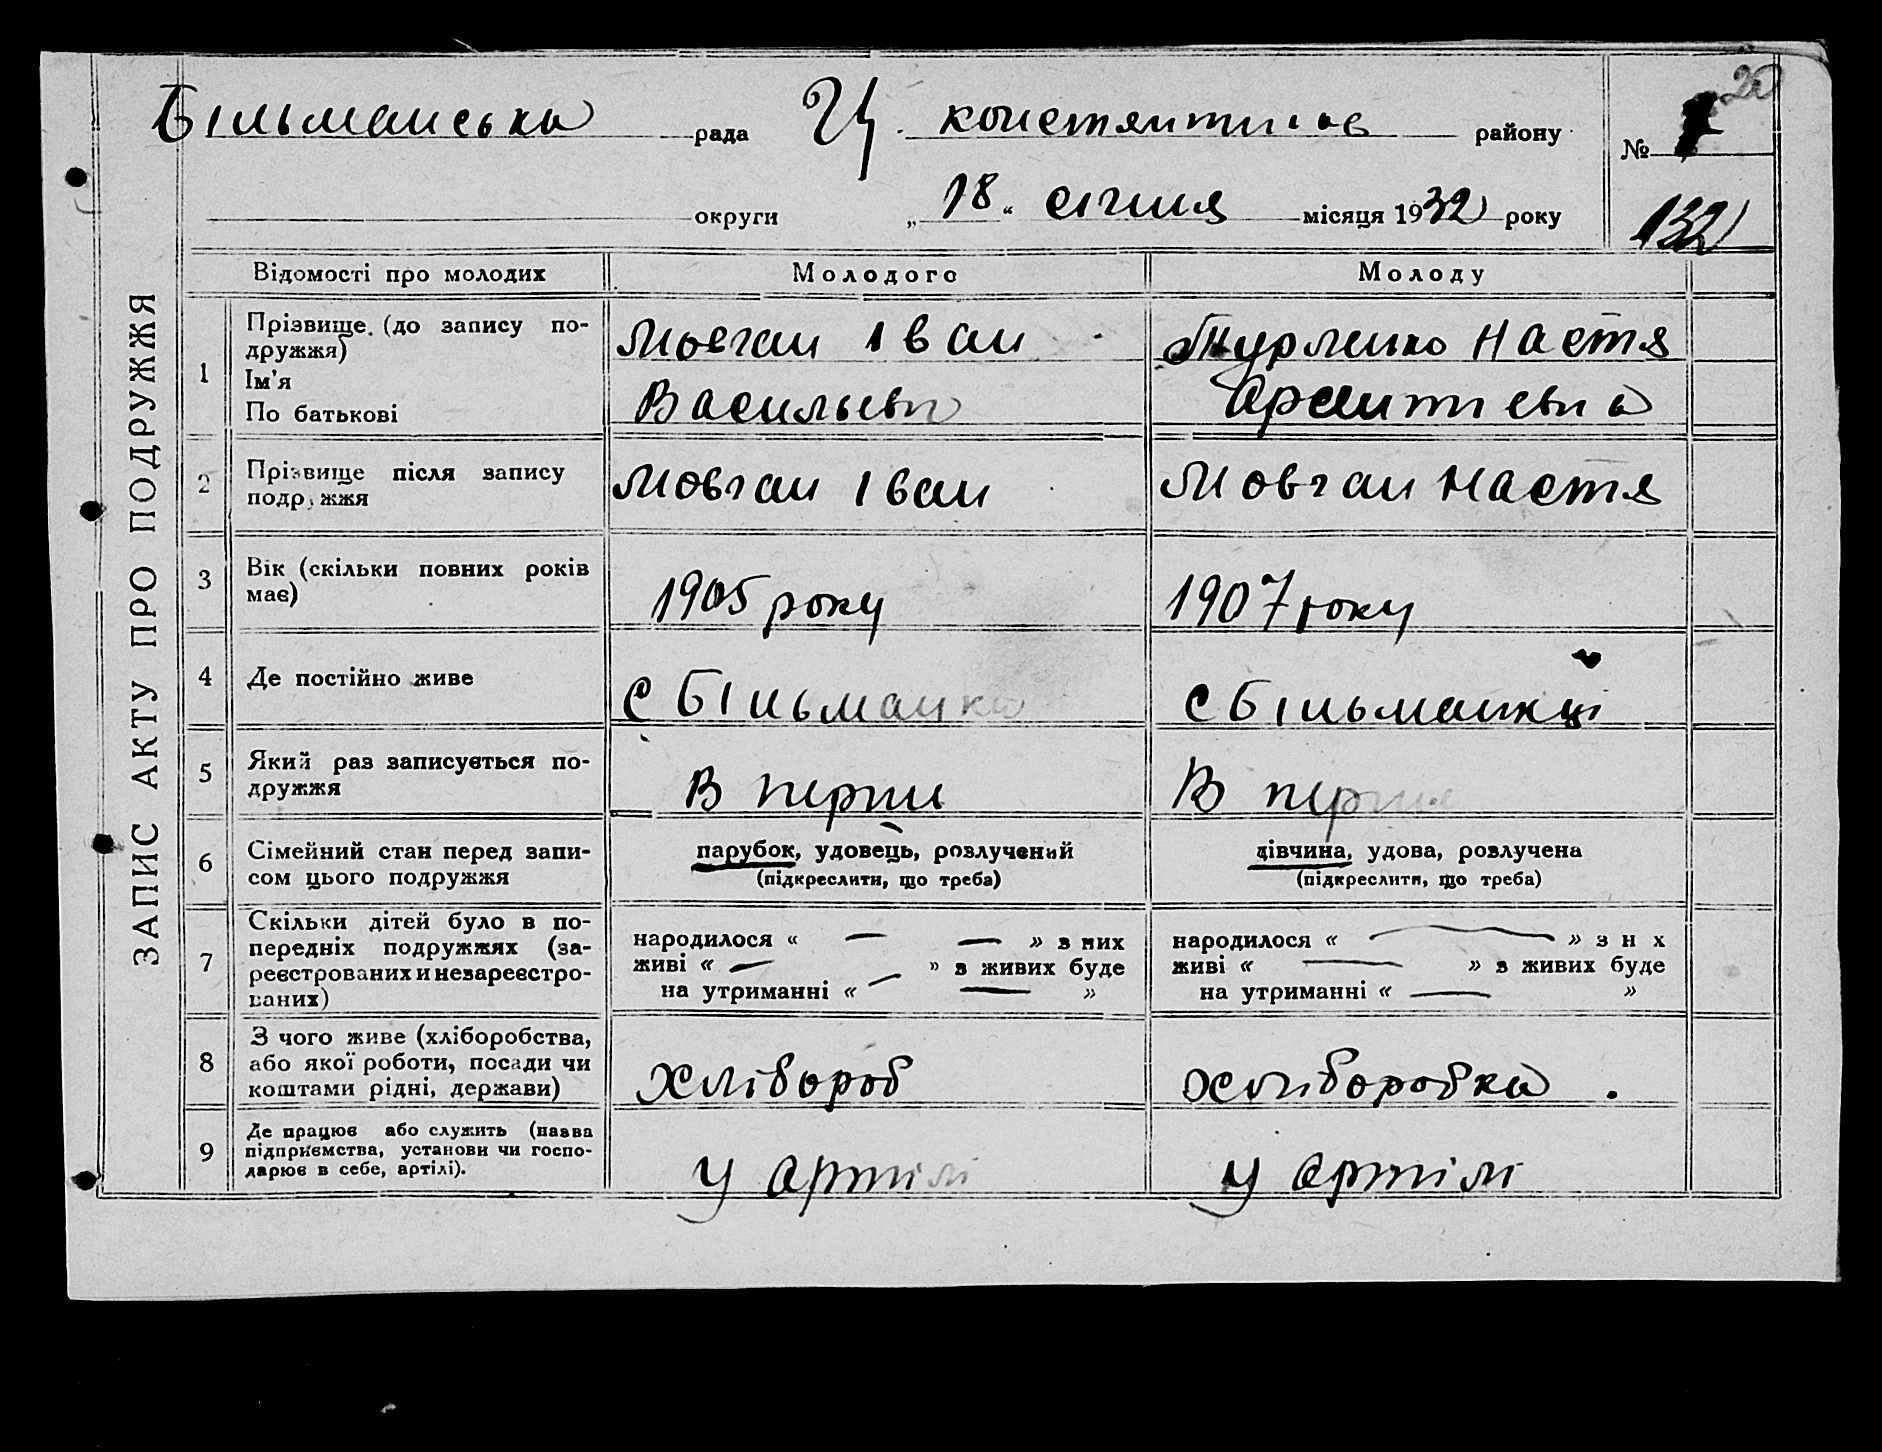 20
Більманська рада Ц. констянтинов району №
округи „18“ січня місяця 1932 року
132
ЗАПИС АКТУ ПРО ПОДРУЖЖЯ
Відомості про молодих Молодого Молоду
1 Прізвище (до запису по-
дружжя)
Ім'я
По батькові
Мовчан Іван
Васильевич
Настя
2 Прізвище після запису
подружжя
Мовчан Іван
Мовчан Настя
3 Вік (скільки повних років
має)
1905 року
1907 року
4 Де постійно живе
с Більманка
с Більманкці
5 Який раз записується по-
дружжя
В перши
В перши
6 Сімейний стан перед запи-
сом цього подружжя
парубок, удовець, розлучений
(підкреслити, що треба)
дівчина, удова, розлучена
(підкреслити, що треба)
7 Скільки дітей було в по-
передніх подружжях (за-
реєстрованих и незареєстро-
ваних)
народилося « — — » з них
живі « — » з живих буде
на утриманні « — — »
народилося « — » з н х
живі « — » з живих буде
на утриманні « — »
8 З чого живе (хліборобства,
або якої роботи, посади чи
коштами рідні, держави)
Хлібороб
Хліборобка.
9 Де працює або служить (назва
підприємства, установи чи госпо-
дарює в себе, артілі).
у артілі
у артілі